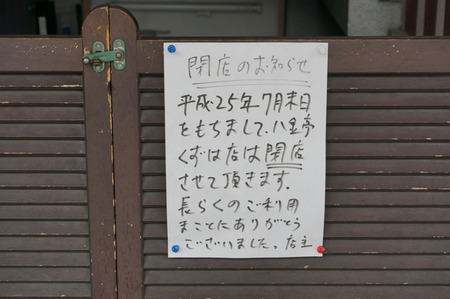 閉店のお知らせ
平成25年7月末日
をもちまして、八金亭
くずは店は閉店
させて頂きます.
長らくのご利用
まことにありがとう
ございました。店主